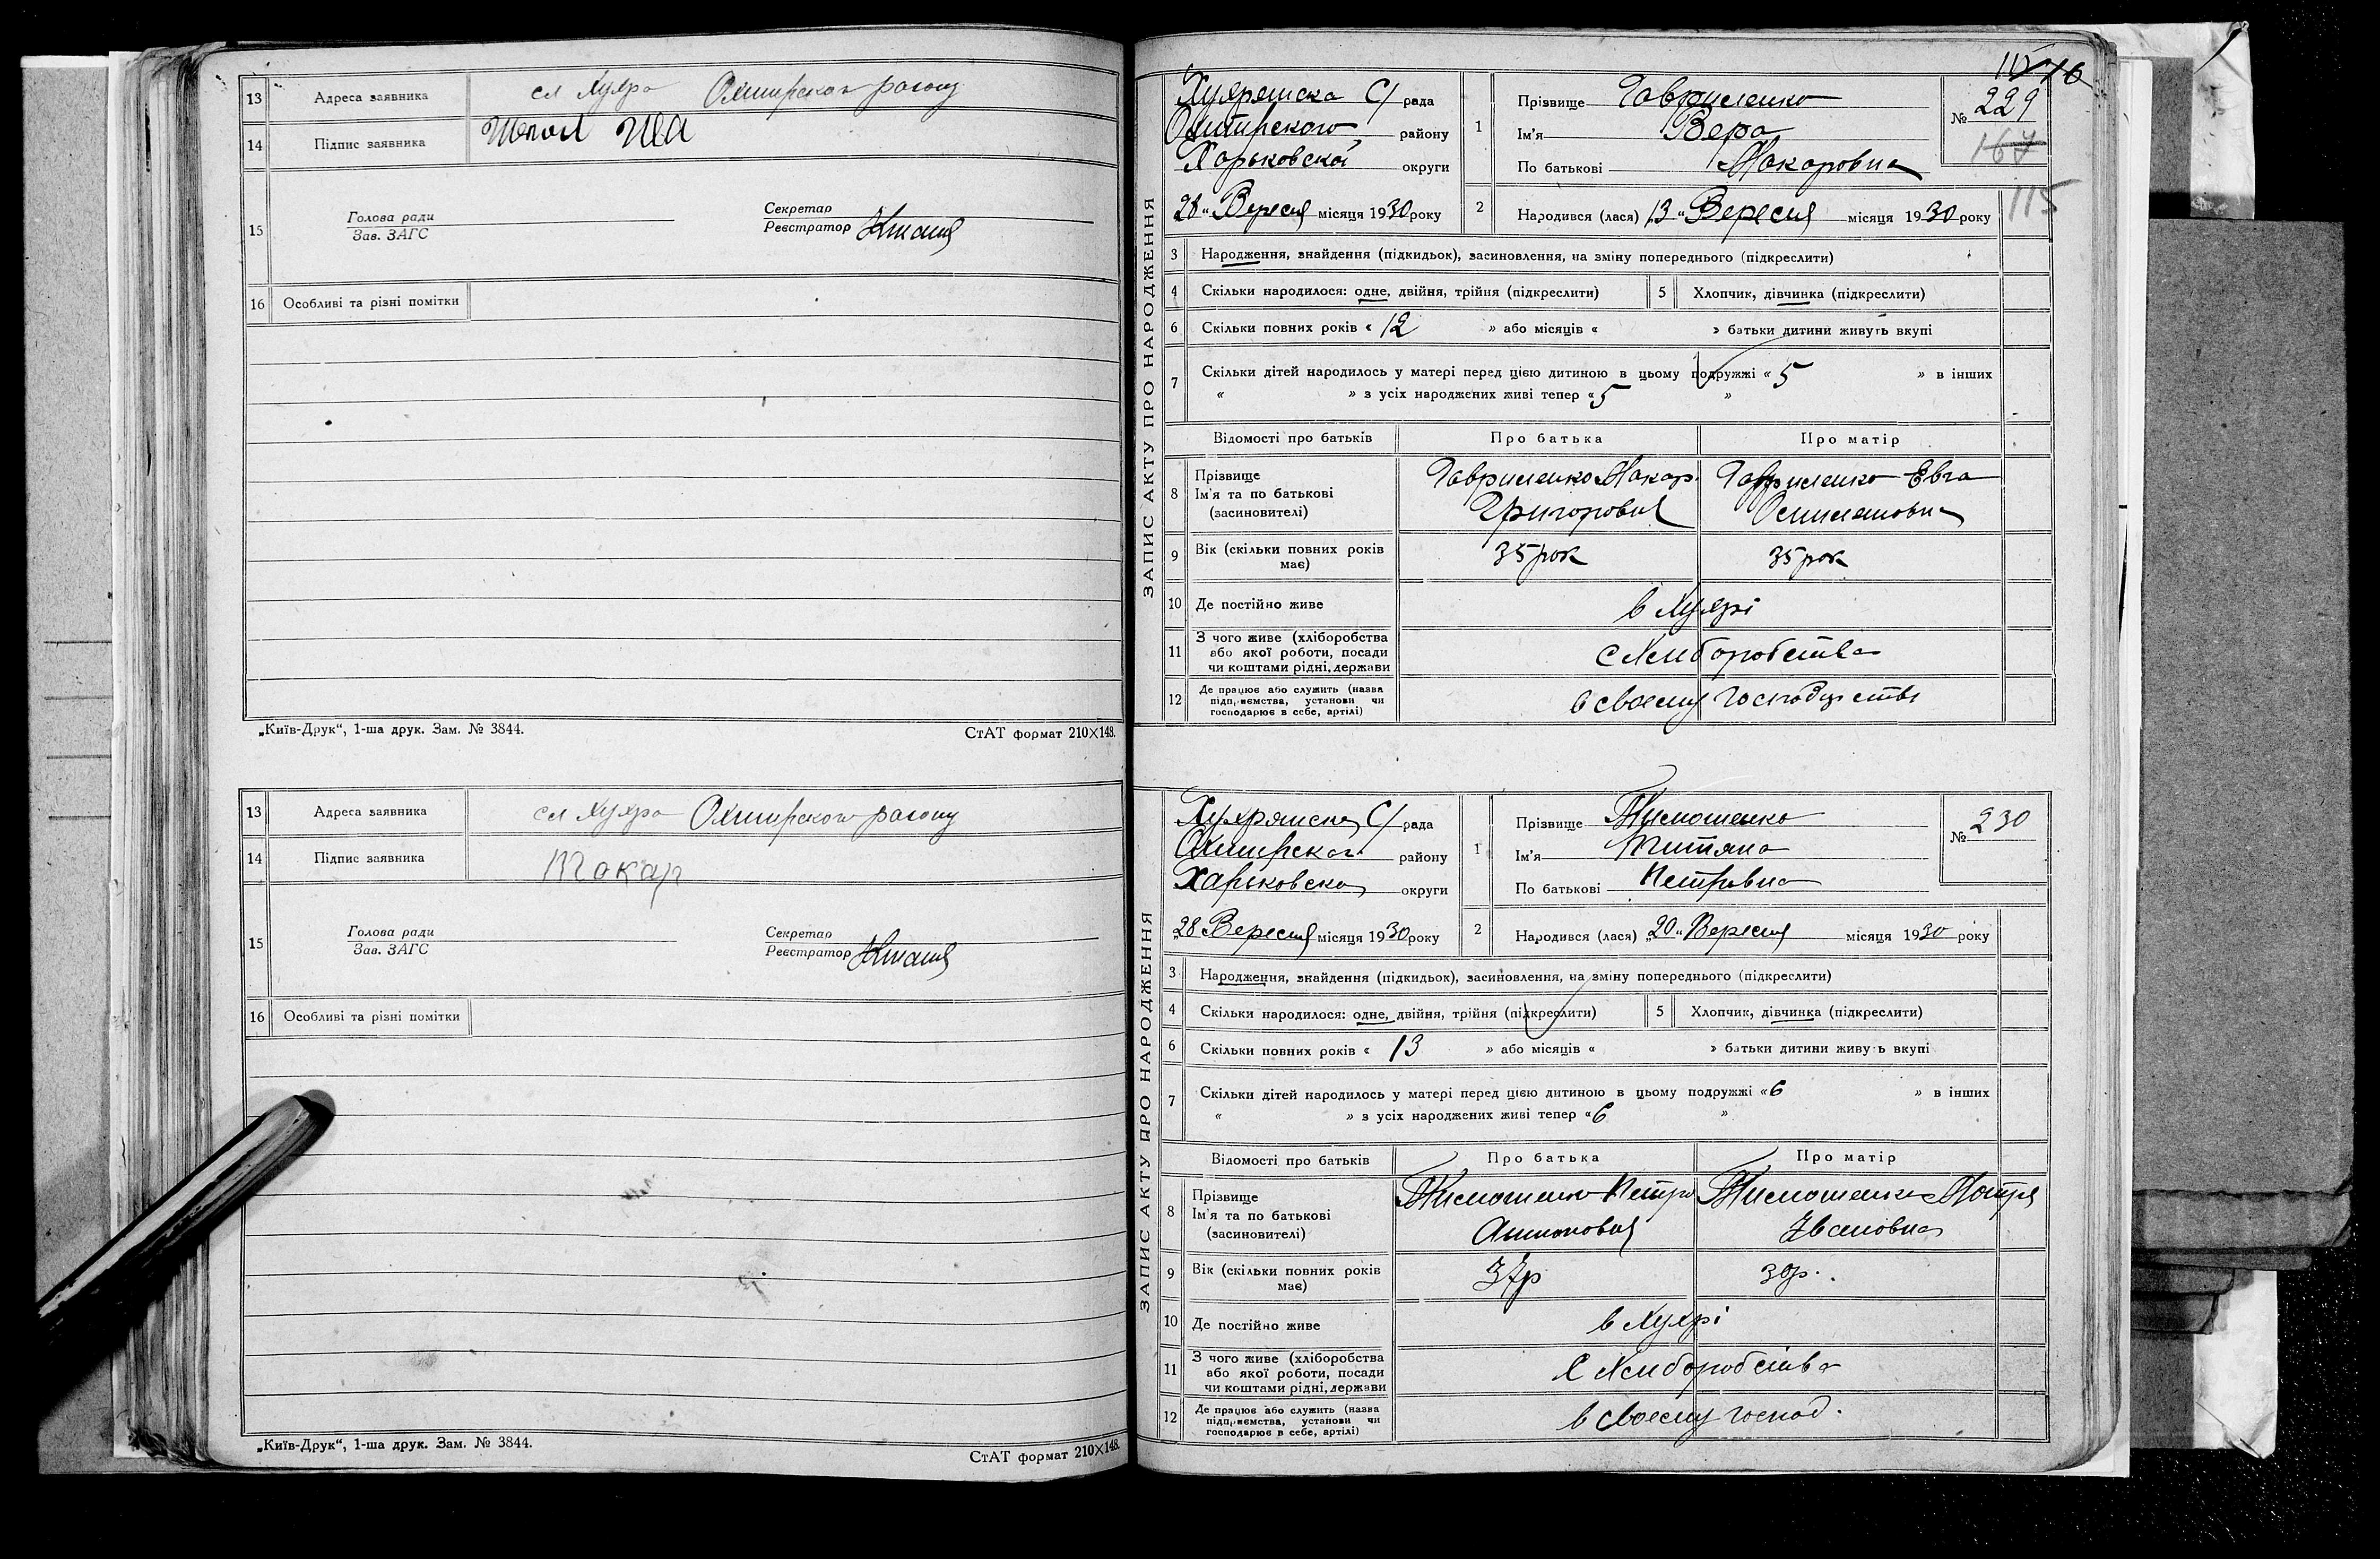 13 Адреса заявника сл Хухра Охтирского району
14 Підпис заявника
15 Голова ради
Зав. ЗАГС
Секретар
Реєстратор
16 Особливі та різні помітки
„Київ-Друк“, 1-ша друк. Зам. № 3844.
СтАТ формат 210×148.
13 Адреса заявника сл Хухра Охтирского району
14 Підпис заявника Токар
15 Голова ради
Зав. ЗАГС
Секретар
Реєстратор
16 Особливі та різні помітки
„Київ-Друк“, 1-ша друк. Зам. № 3844.
СтАТ формат 210×148.
116
ЗАПИС АКТУ ПРО НАРОДЖЕННЯ
Хухрянска С/ рада
Охтирского району
Харьковскої округи
28 „ Вересня місяця 1930 року
1 Прізвище Гавриленко
Ім'я Вера
По батькові Макаровна
№ 229
167
115
2 Народився (лася) 13 „ Вересня місяця 1930 року
3 Народження, знайдення (підкидьок), засиновлення, на зміну попереднього (підкреслити)
4 Скільки народилося: одне, двійня, трійня (підкреслити) 5 Хлопчик, дівчинка (підкреслити)
6 Скільки повних років « 12 » або місяців « » батьки дитини живуть вкупі
7 Скільки дітей народилось у матері перед цією дитиною в цьому подружжі « 5 » в інших
« » з усіх народжених живі тепер « 5 »
Відомості про батьків Про батька Про матір
8 Прізвище
Ім'я та по батькові
(засиновителі)
Гавриленко Макар
Григорович
Гавриленко Евга
9 Вік (скільки повних років
має)
35 рок 35 рок
10 Де постійно живе в Хухрі
11 З чого живе (хліборобства
або якої роботи, посади
чи коштами рідні, держави
с Хлиборобства
12 Де працює або служить (назва
підприємства, установи чи
господарює в себе, артілі)
в своему господарстві
ЗАПИС АКТУ ПРО НАРОДЖЕННЯ
Хухрянска С/ рада
Охтирског району
Харьковска округи
„28 „ Вересня місяця 1930 року
1 Прізвище Тимошенко
Ім'я Титяна
По батькові Петровна
№ 230
2 Народився (лася) „20 „ Вересня місяця 1930 року
3 Народження, знайдення (підкидьок), засиновлення, на зміну попереднього (підкреслити)
4 Скільки народилося: одне, двійня, трійня (підкреслити) 5 Хлопчик, дівчинка (підкреслити)
6 Скільки повних років « 13 » або місяців « » батьки дитини живуть вкупі
7 Скільки дітей народилось у матері перед цією дитиною в цьому подружжі « 6 » в інших
« » з усіх народжених живі тепер « 6 »
Відомості про батьків Про батька Про матір
8 Прізвище
Ім'я та по батькові
(засиновителі)
Тимошенко Петро
Антонович
Тимошенко Мотря
Ивановна
9 Вік (скільки повних років
має)
37р 30р.
10 Де постійно живе в Хухрі
11 З чого живе (хліборобства
або якої роботи, посади
чи коштами рідні, держави
с Хлиборобства
12 Де працює або служить (назва
підприємства, установи чи
господарює в себе, артілі)
в своему господ.